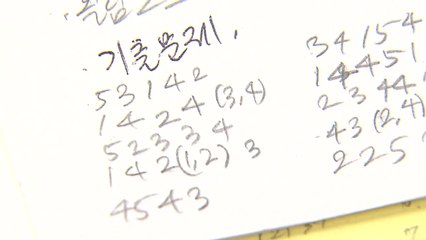 기출문제,
5 3 1 4 2
1 4 2 4 (3,4)
5 2 3 3 4
1 4 2 (1,2) 3
4 5 4 3
3 4 1 5 4
1 4 4 5 1
2 3 4 4
4 3 (2,4)
2 2 5